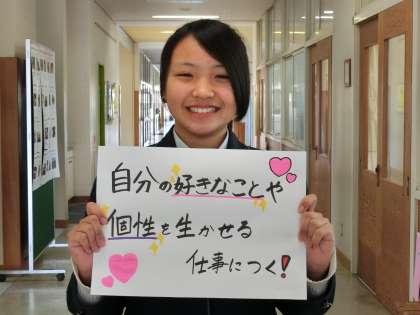 自分の好きなことや
個性を生かせる
仕事につく!